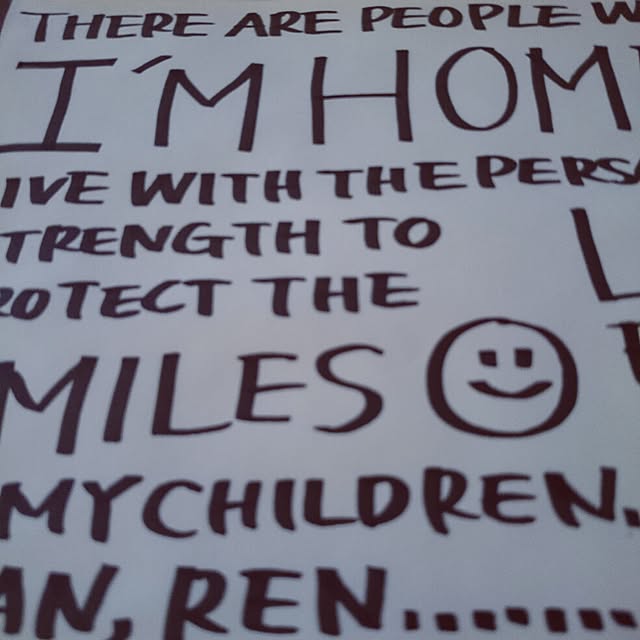 THERE ARE PEOPLE W
I'M HOM
IVE WITH THE PERS
TRENGTH TO
ROTECT THE
MILES
MY CHILDREN.
AN, REN........